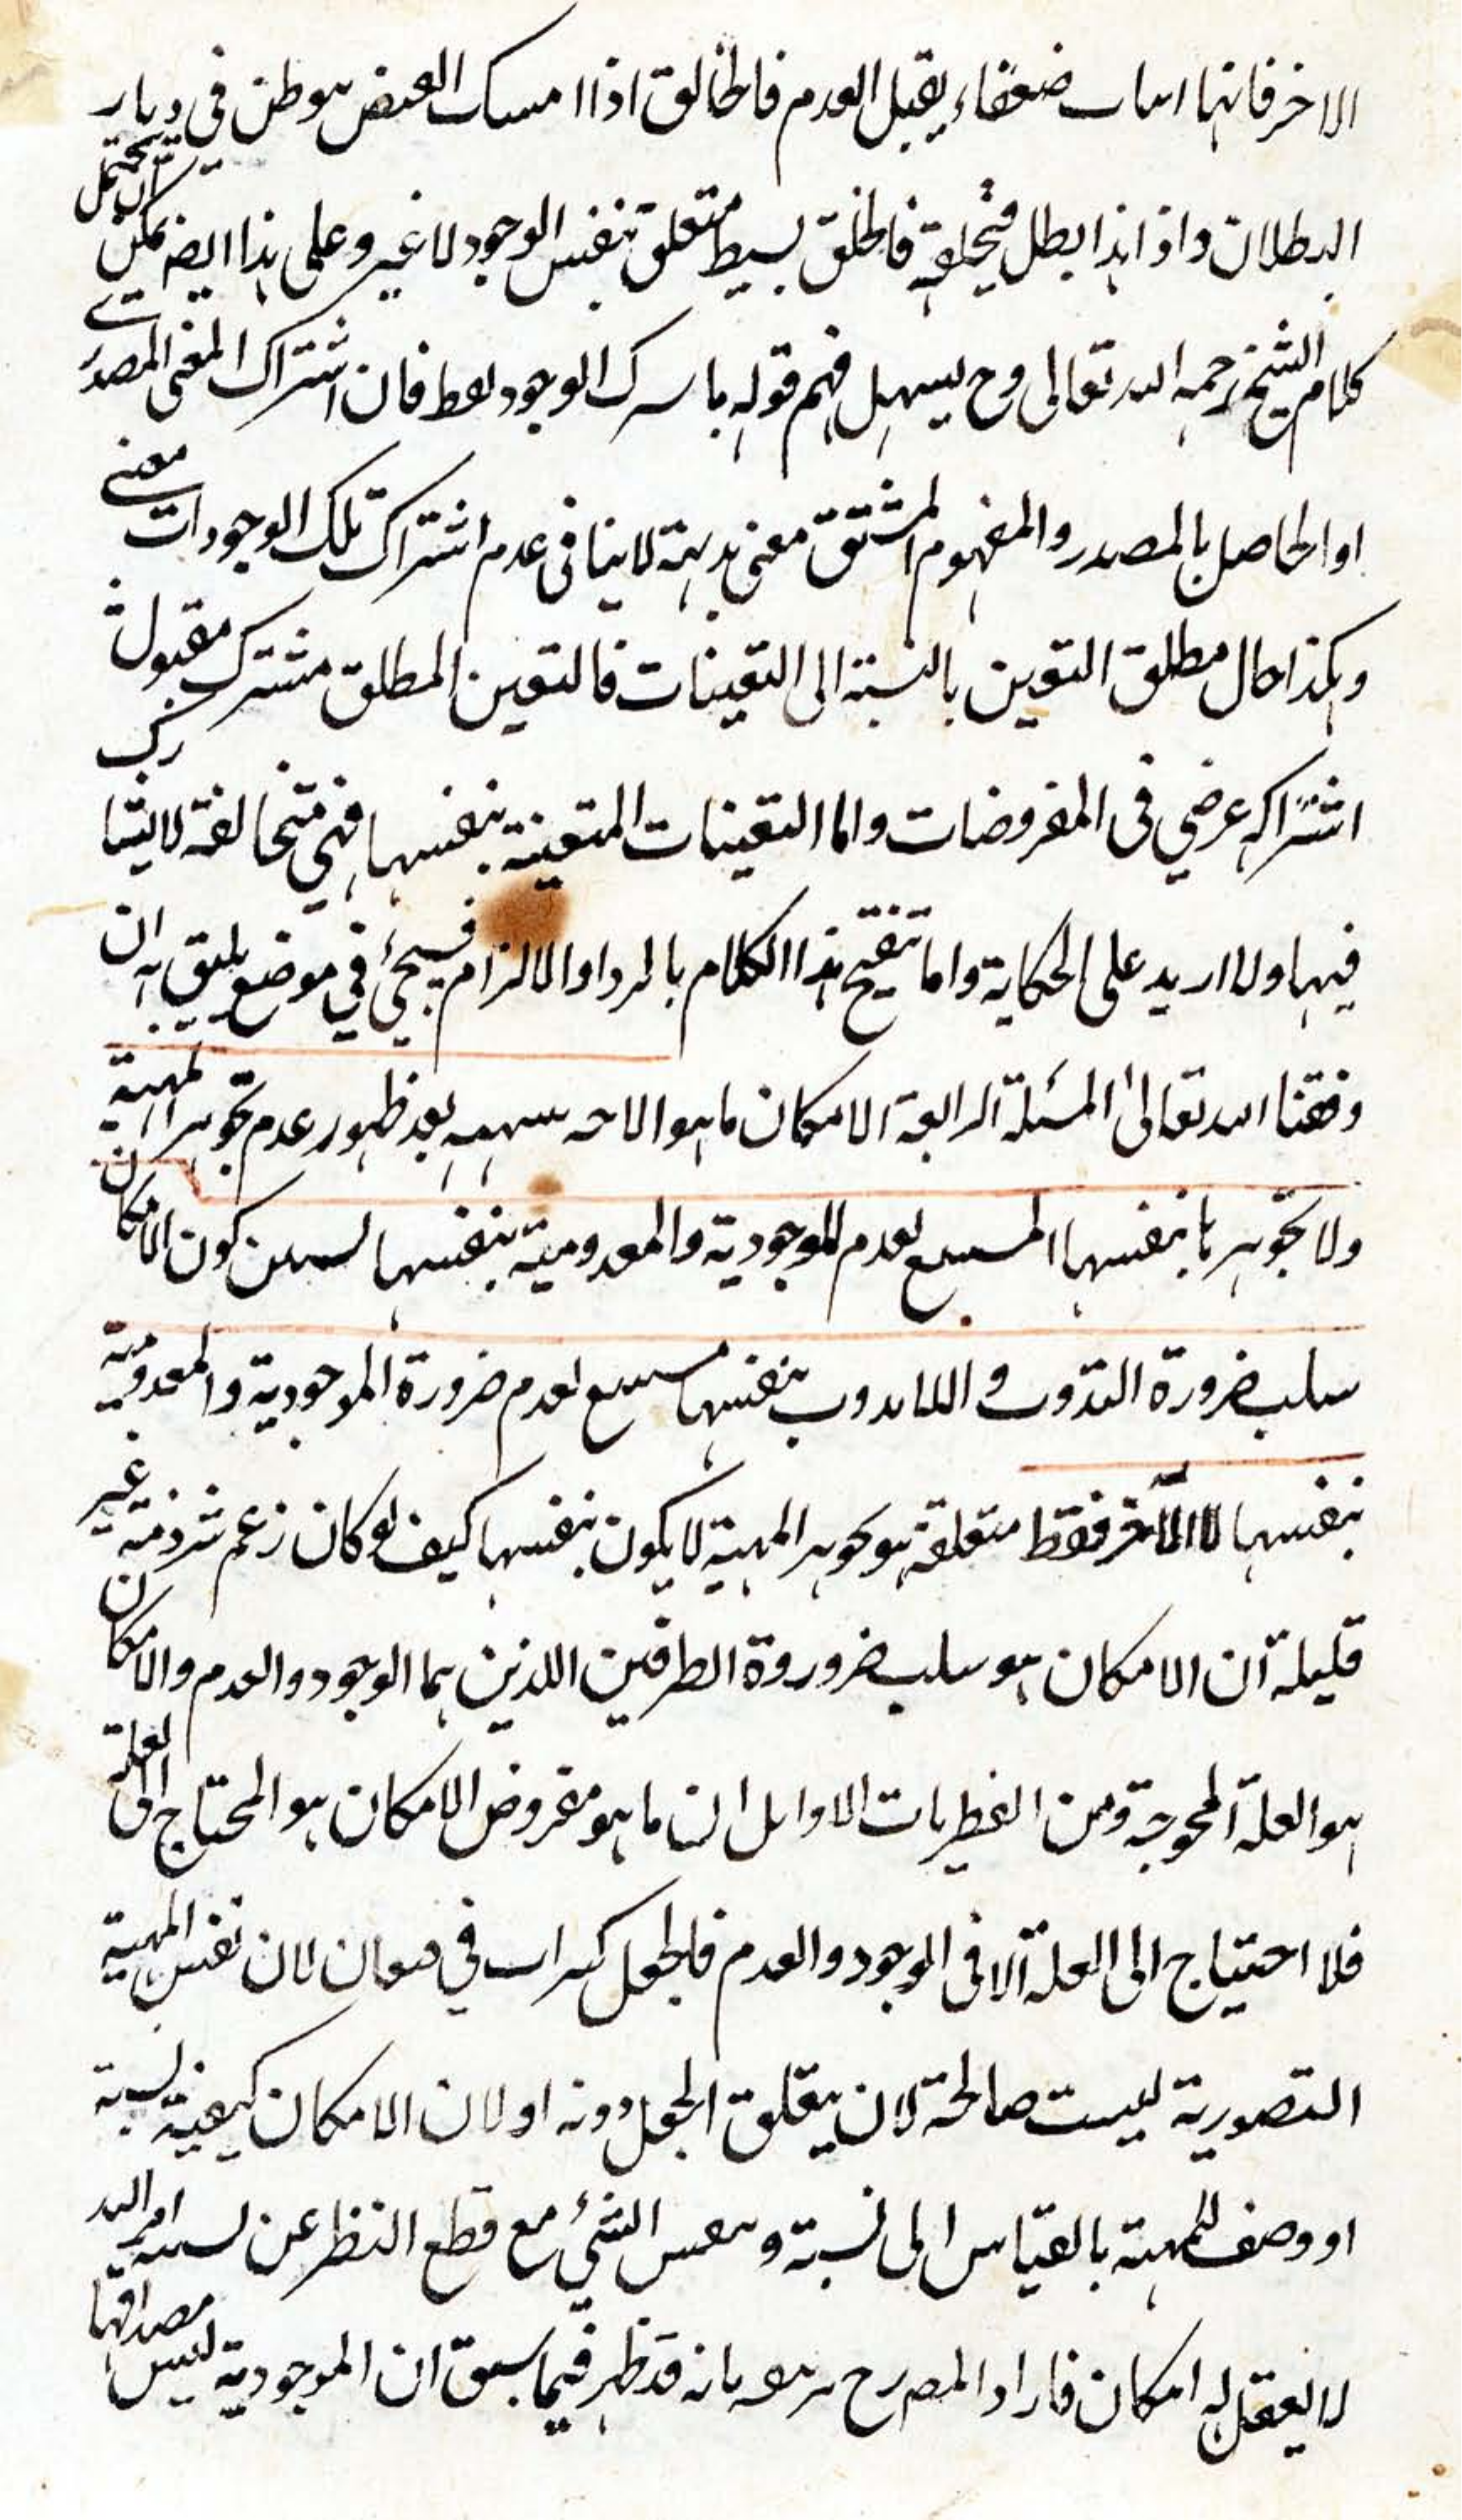 الاخر فانها اسات ضعفاء يقبل العدم فالخالق اذا امسك الفيض هو طن في ديار
البطلان واذ انذا بطل فتحلقه فالخلق بسيط متعلق بنفس الوجود لا غير وعلى هذا ايضا يمكن ان يحمل
كلام الشيخ رحمه الله تعالى وح يسهل فهم قوله باسرك الوجود لفظ فان اشتراك المعنى المصدرى
او الحاصل بالمصدر والمفهوم المشتق معنى بديهة لا ينافى عدم اشتراك تلك الوجودات معنى
وهكذا حال مطلق التعين بالنسبة الى التعينات فالتعين المطلق مشترك مقول
اشتراكه عرضي فى المفروضات واما التعينات المتعينة بنفسها فهي متخالفة لا يتشارك
فيها ولا اريد على الحكاية واما تنقيح هذا الكلام بالرد او الالزام فسيجئ في موضع يليق به ان
وفقنا الله تعالى المسئلة الرابعة الامكان ما هو الاحه سهمه بعد ظهور عدم تجوهر المهية
ولا تجوهرها بنفسها المسبع لعدم الموجودية والمعدومية بنفسها لسعن كون الامكان
سلب ضرورة التذوت واللاتذوت بنفسها مستتبع لعدم ضرورة الموجودية والمعدومية
بنفسها لا الآخر فقط متعلقه هو تجوهر المهية لا يكون بنفسها كيف لو كان زعم شرذمة غير
قليلة ان الامكان هو سلب ضرورة الطرفين اللذين هما الوجود والعدم والامكان
هو العلة المحوجة ومن الفطريات الاوايل ان ما هو مفروض الامكان هو المحتاج الى العلة
فلا احتياج الى العلة الا فى الوجود والعدم فالجعل كسراب في قيعان لان نفس المهية
التصورية ليست صالحة لان يتعلق الجعل دونه او لان الامكان كيفية نسبة
او وصف للمهية بالقياس الى نسبة ونفس الشئ مع قطع النظر عن نسبة امر اليه
لا يعقل له امكان فاراد المصرح تزييفه بانه قد ظهر فيما سبق ان الموجودية ليس مصداقها